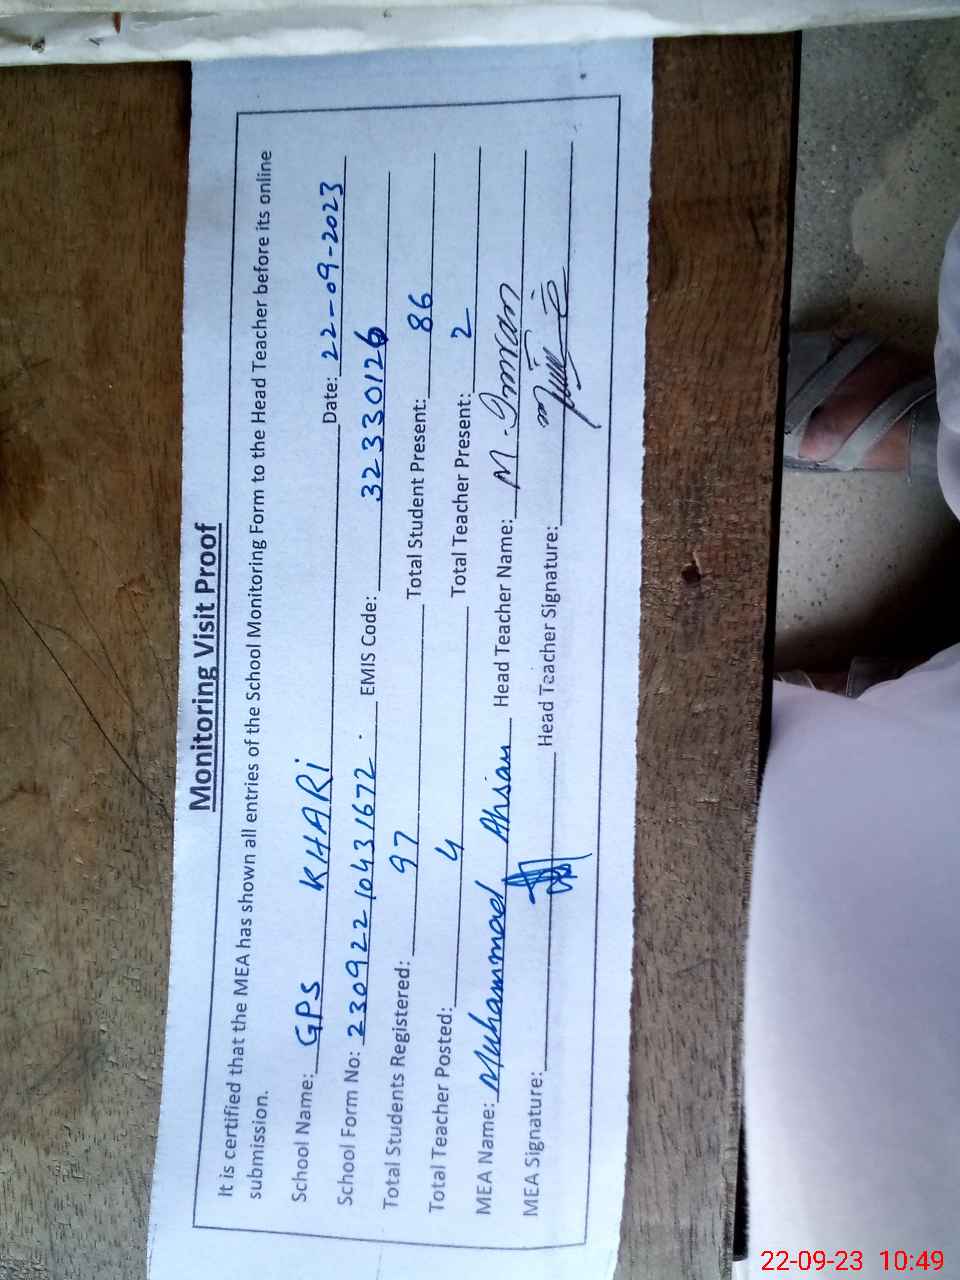 Monitoring Visit Proof
It is certified that the MEA has shown all entries of the School Monitoring Form to the Head Teacher before its online
submission.
School Name: GPS KHARi Date: 22-09-2023
School Form No: 2309221043 1672 . EMIS Code: 32330126
Total Students Registered: 97 Total Student Present: 86
Total Teacher Posted: 4 Total Teacher Present: 2
MEA Name: Muhammad Ahsan Head Teacher Name: M. Imran
MEA Signature: Head Teacher Signature:
22-09-23 10:49